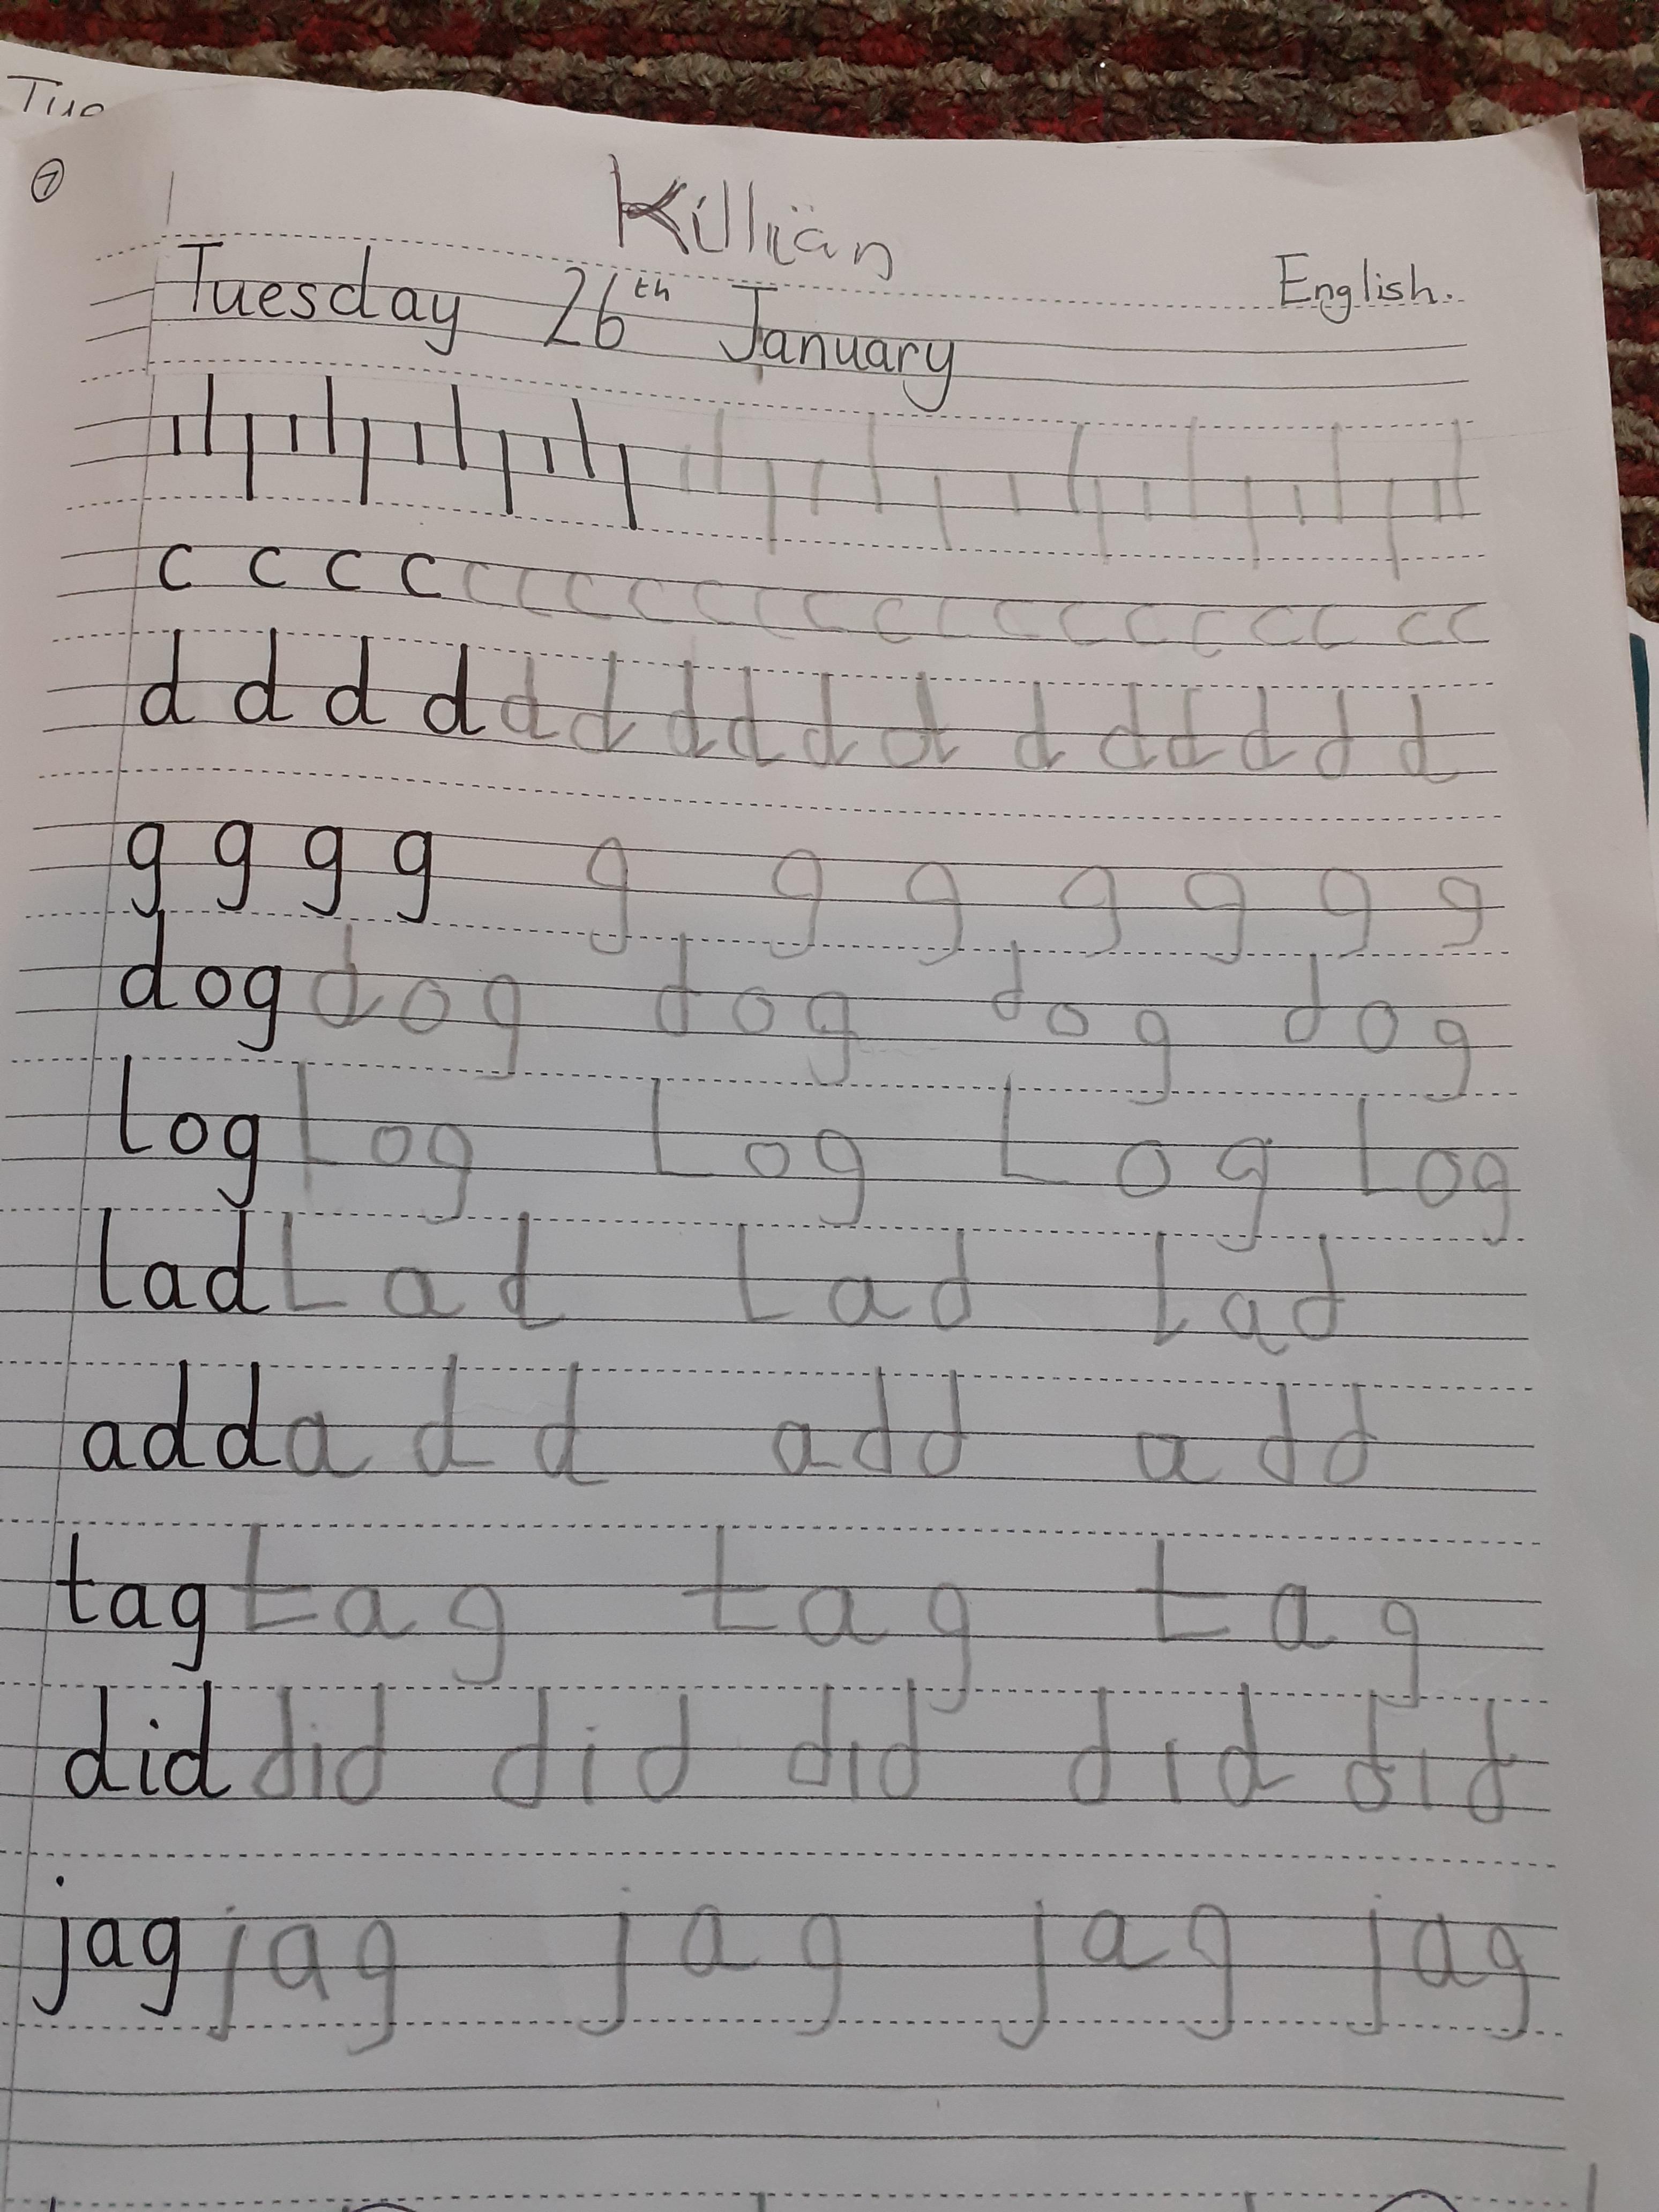 Tue
7
Killian
Tuesday 26th January English.
c c c c c c c c c c c c c c c c c c c c
d d d d d d d d d d d d d d d d
g g g g g g g g g g g
dog dog dog dog dog
log log log log log
lad lad lad lad
add add add add
tag tag tag tag
did did did did did did
jag jag jag jag jag